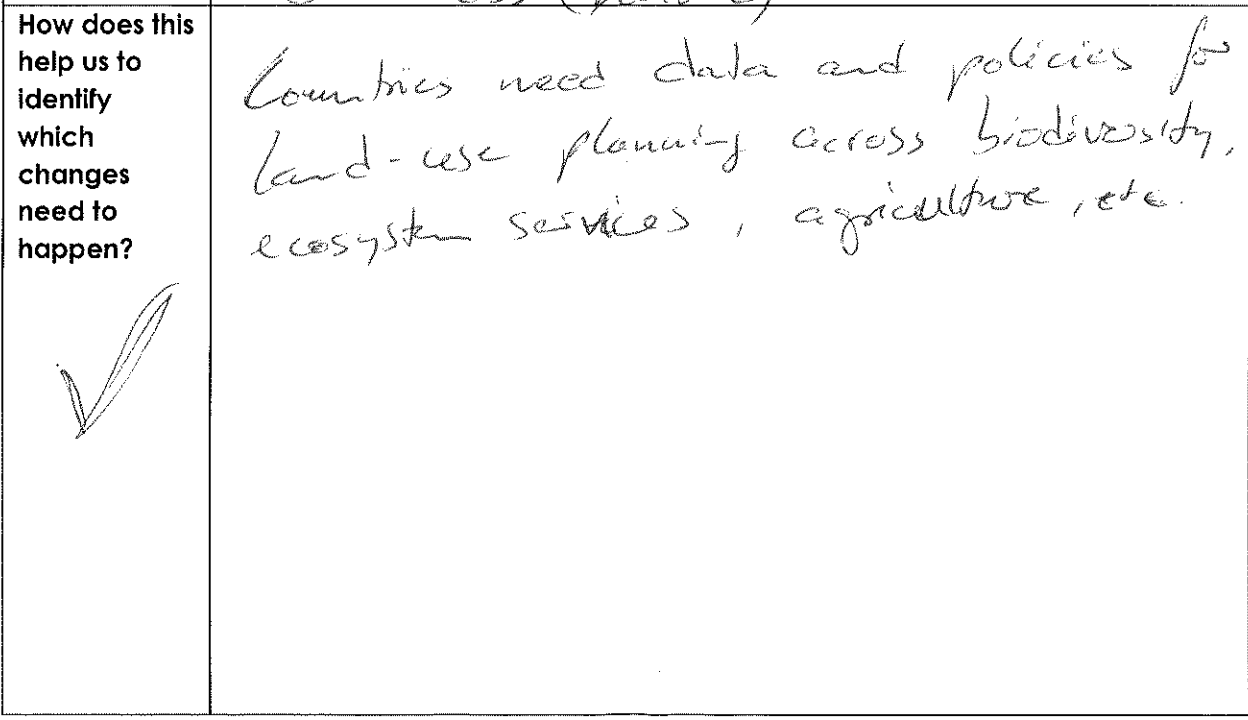 How does this
help us to
identify
which
changes
need to
happen?
Countries need data and policies for
land-use planning across biodiversity,
ecosystem services, agriculture, etc.